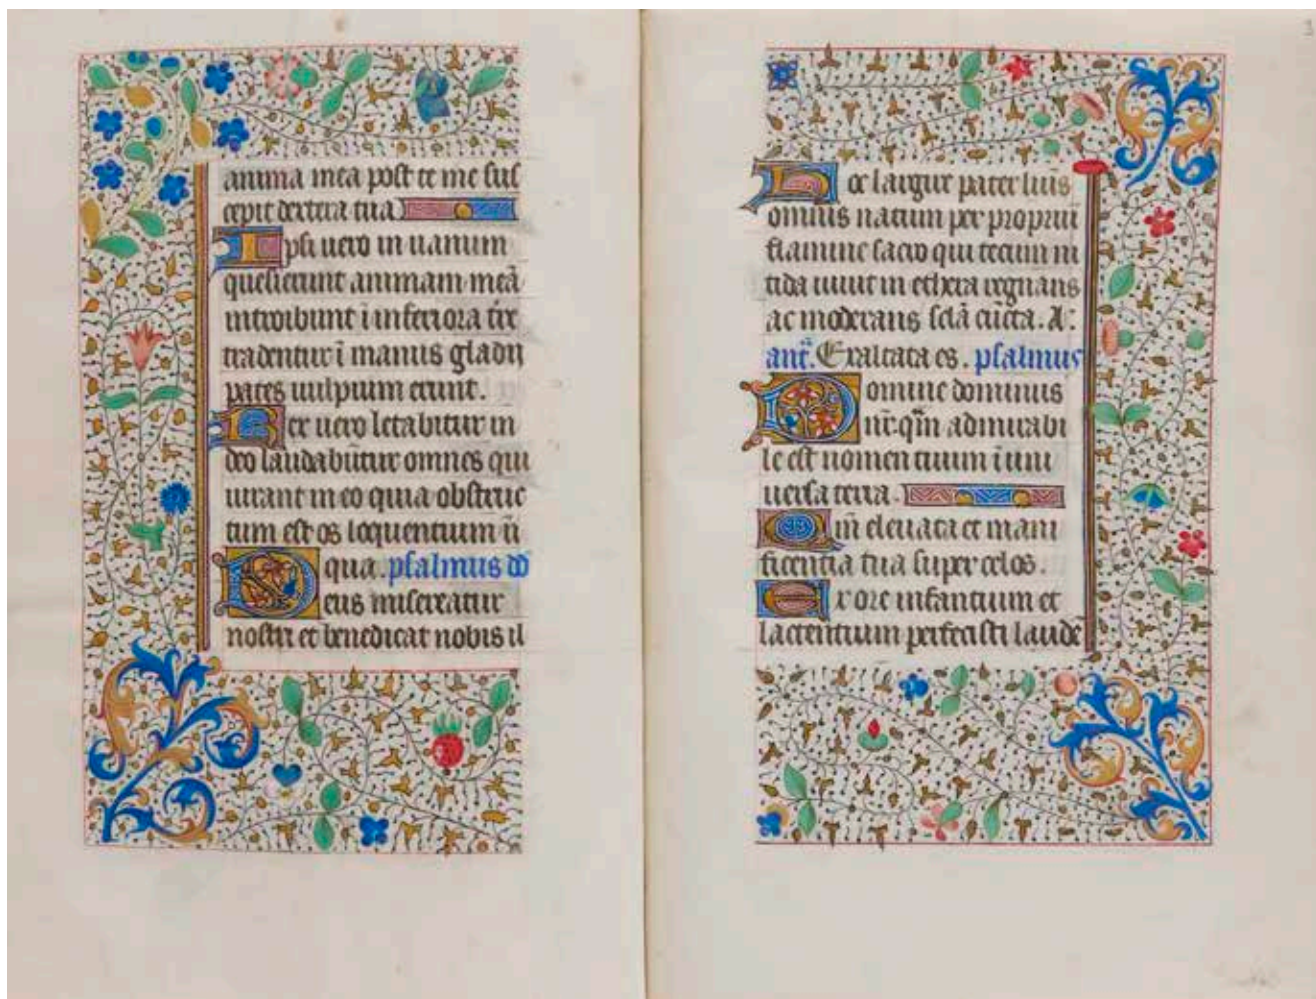 anima mea post te me sus
cepit dextera tua
Ipsi uero in uanum
quesierunt animam meā
introibunt ī inferiora tr̄e
tradentur ī manus gladij
partes uulpium erunt.
Rex uero letabitur in
deo laudabūtur omnes qui
iurant in eo quia obstruc
tum est os loquentium īi
qua. psalmus dd
Deus misereatur
nostri et benedicat nobis il
Hoc largire pater luīs
omnis natum per propriū
flamine sacro qui tecum ni
tida uiuit in ethera regnans
ac moderans sclā cūcta. A.
ant̄. Exaltata es. psalmus
Domine dominus
nr̄. qm̄ admirabi
le est nomen tuum ī uni
uersa terra.
Qm̄ eleuata et mani
ficentia tua super celos.
Ex ore infantium et
lactentium perfecisti laudē